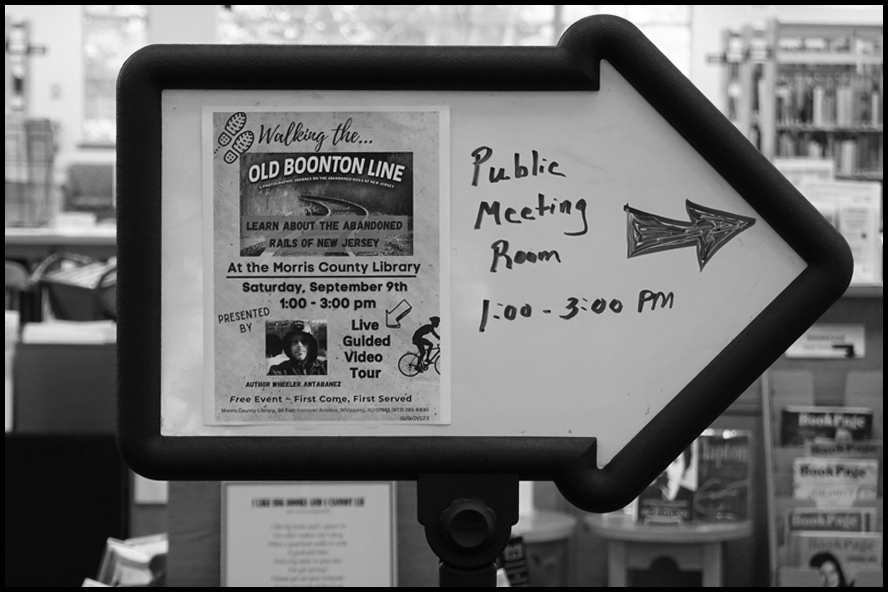 Walking the...
OLD BOONTON LINE
A PHOTOGRAPHIC JOURNEY ON THE ABANDONED RAILS OF NEW JERSEY
LEARN ABOUT THE ABANDONED
RAILS OF NEW JERSEY
At the Morris County Library
Saturday, September 9th
1:00 - 3:00 pm
PRESENTED
BY
Live
Guided
Video
Tour
AUTHOR WHEELER ANTABANEZ
Free Event ~ First Come, First Served
Morris County Library, 30 East Hanover Avenue, Whippany, NJ 07981 (973) 285-6930
9/9/2023
Public
Meeting
Room
1:00 - 3:00 PM
I LIKE BIG BOOKS AND I CANNOT LIE
BookPage
BookPage
BookPage
BookPage
BookPage